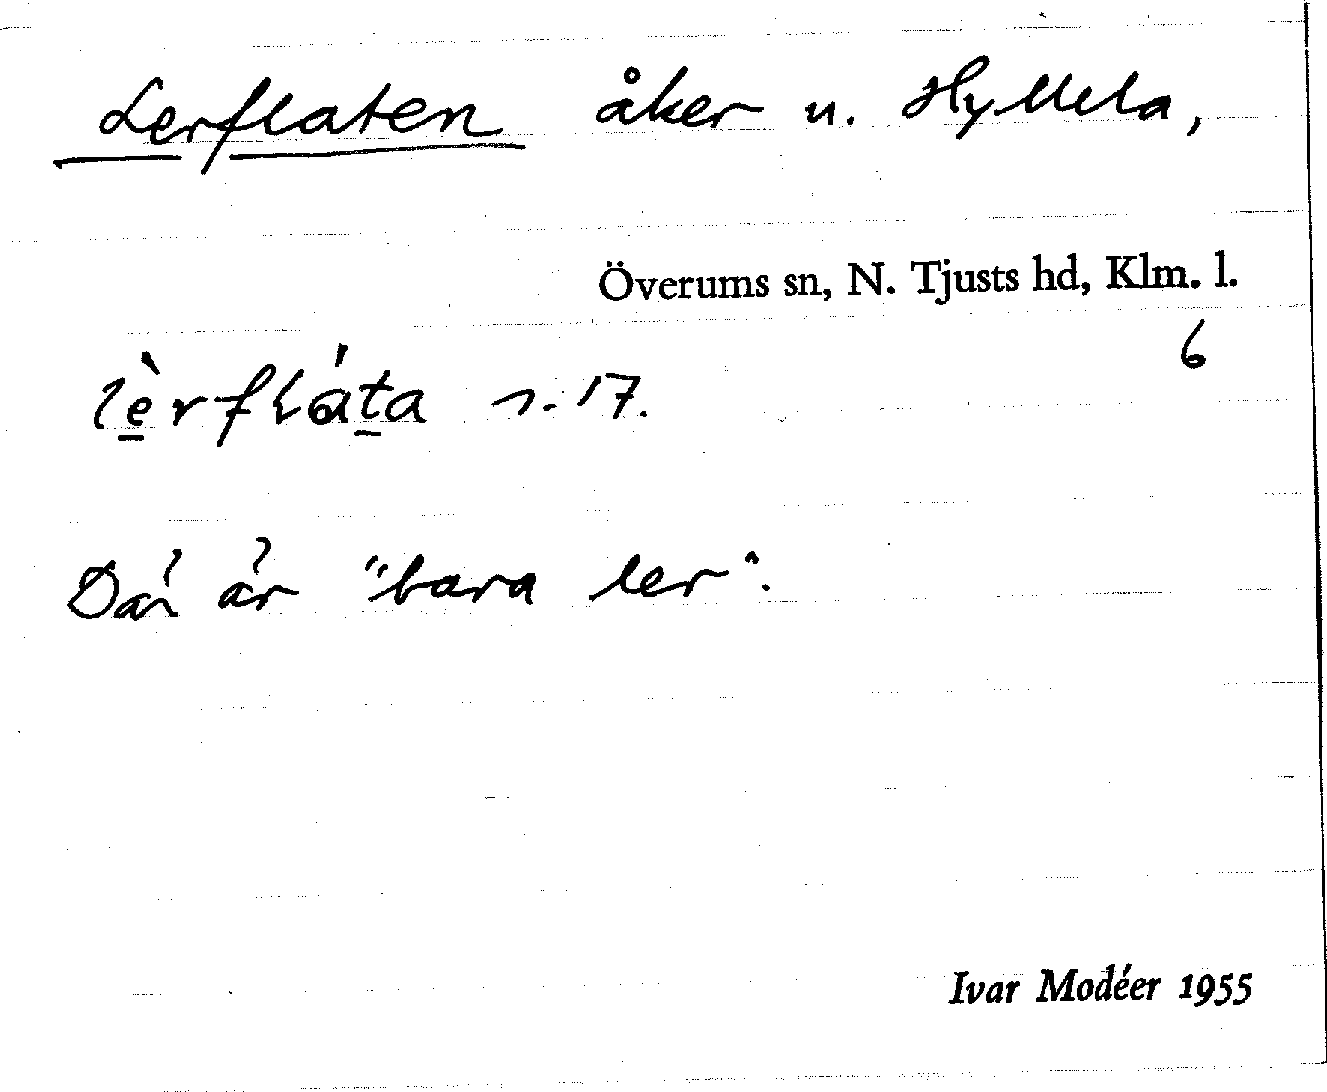 Lerflaten åker u. Hyllela,
Överums sn, N. Tjusts hd, Klm. l.
6
lèrfláta s. 17.
Där är "bara ler".
Ivar Modéer 1955